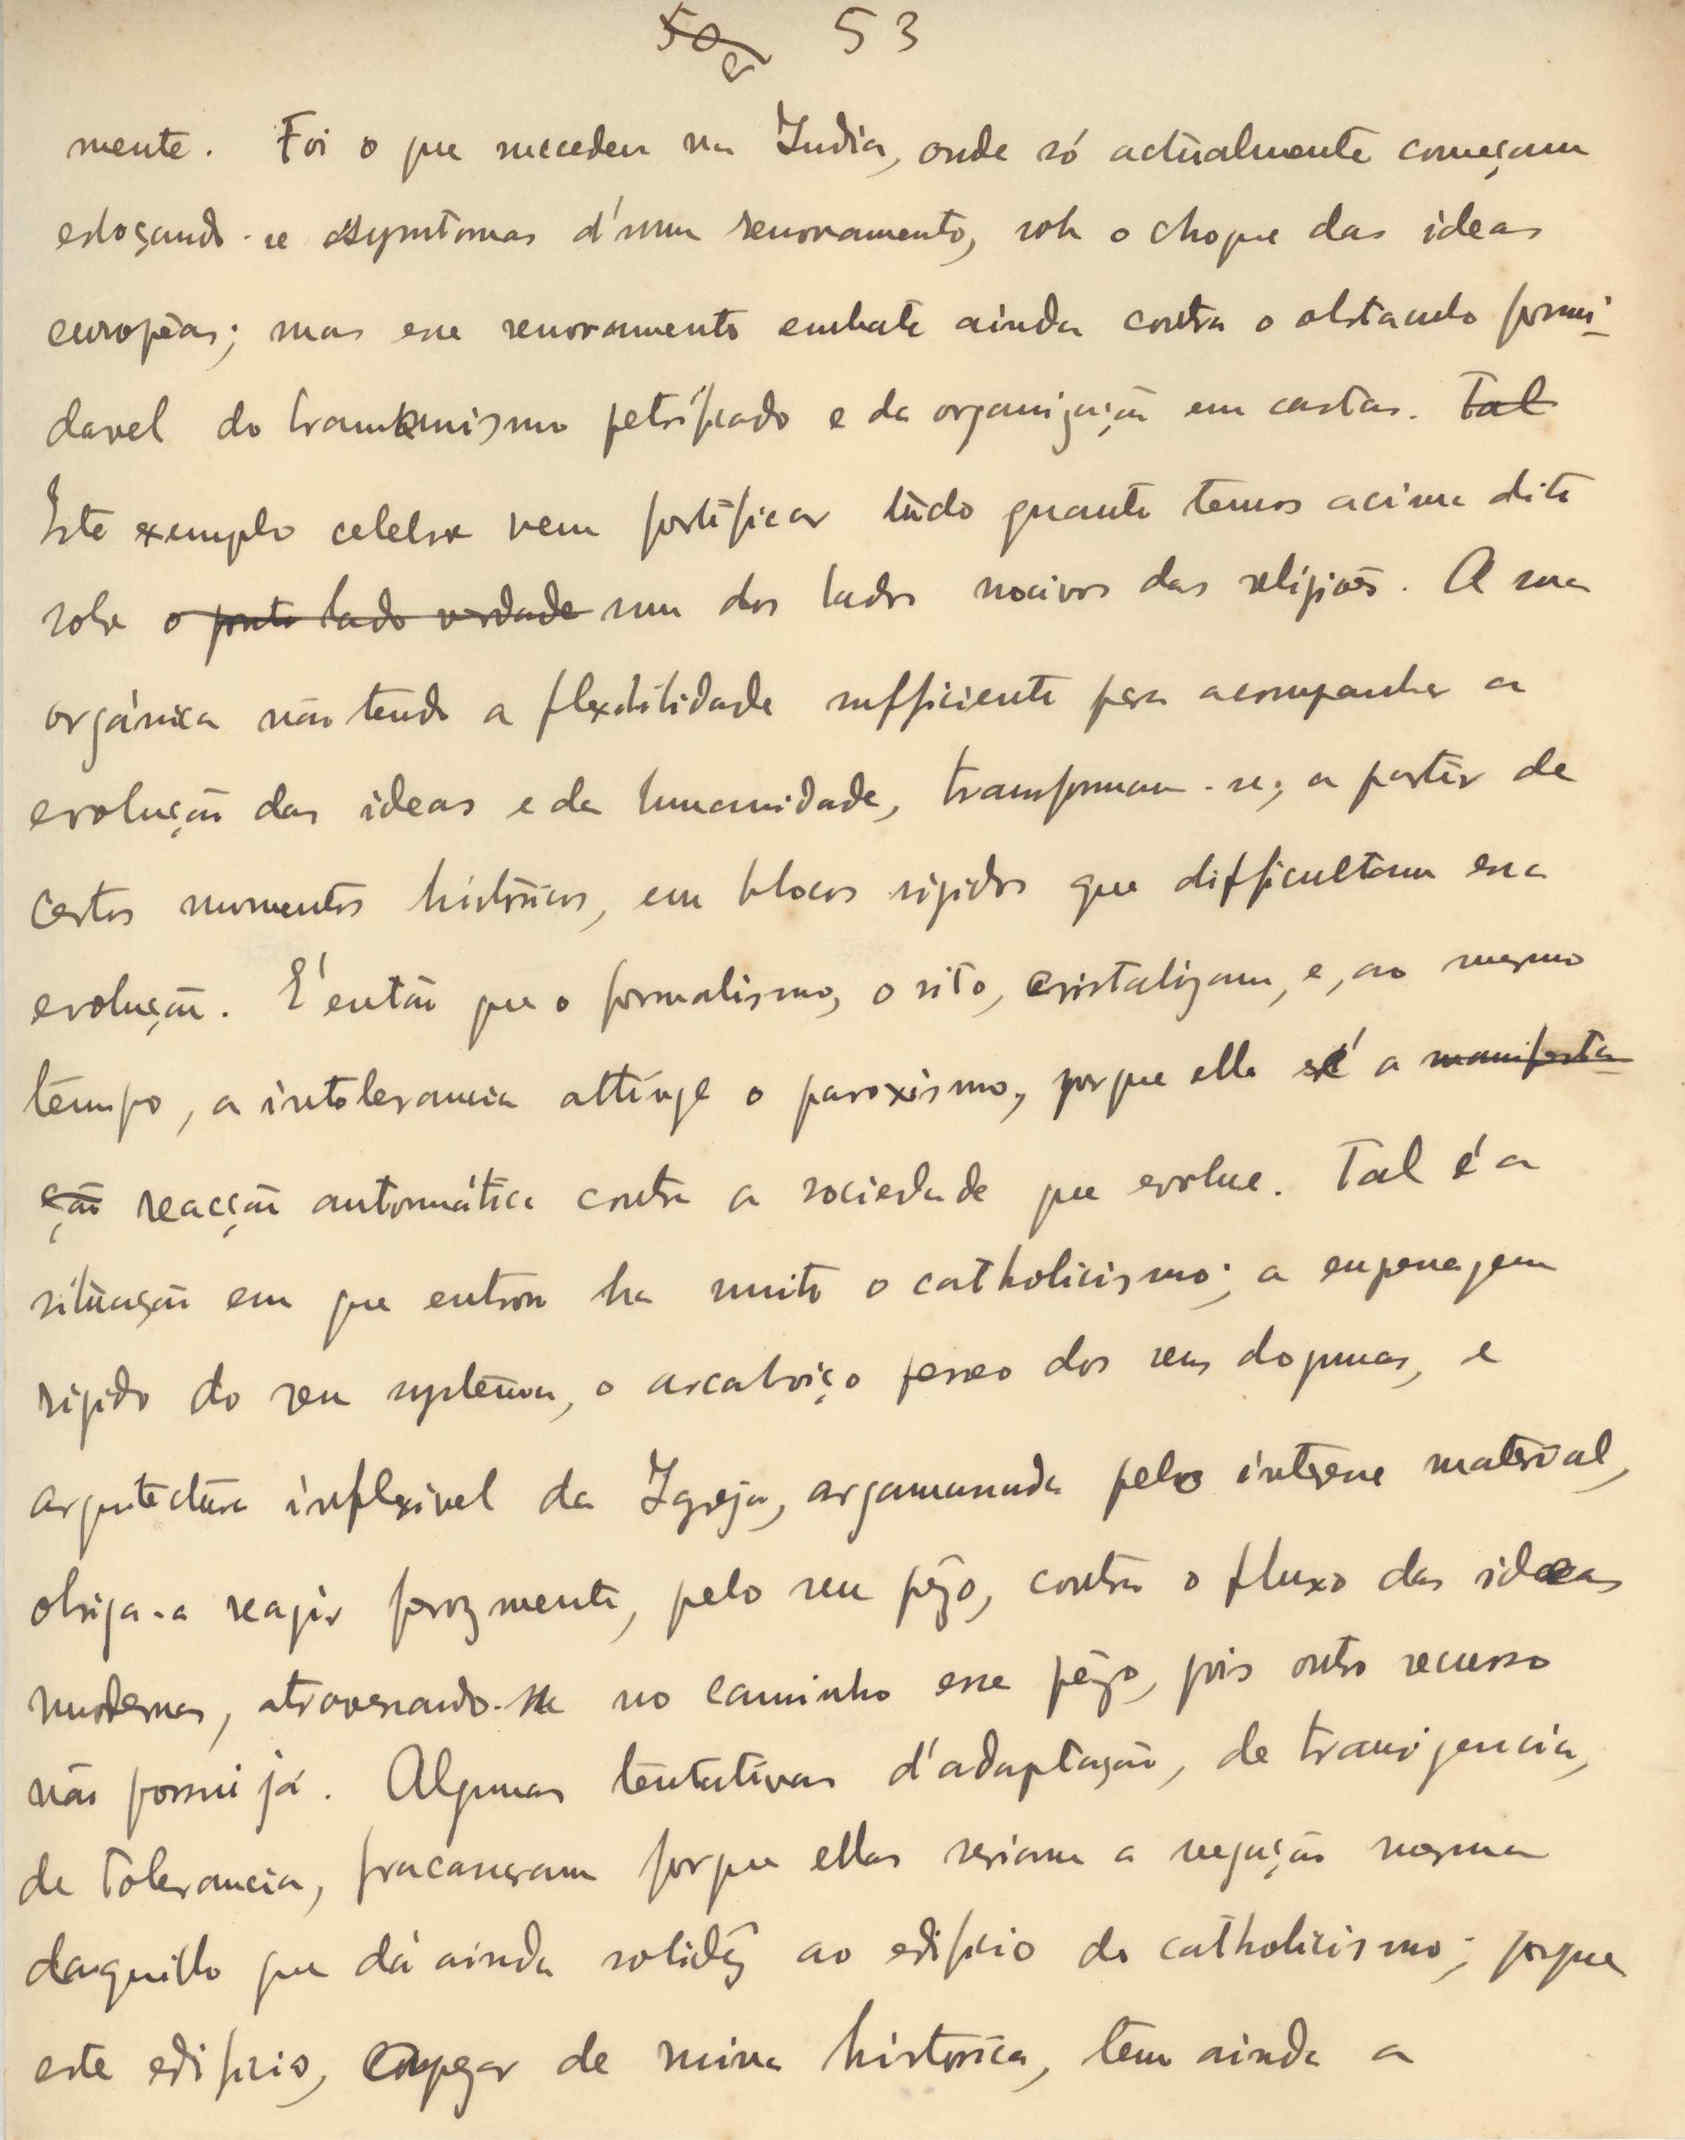 50 53
mente. Foi o que succedeu na India, onde só actualmente começam
esboçando-se symtomas d'um renovamento, sob o choque das ideas
europêas; mas esse renovamento embate ainda contra o obstaculo formi-
davel do bramanismo petrificado e da organização em castas. Tal
Este exemplo celebre vem fortificar tudo quanto temos acima dito
sobre o ponto lado verdade um dos lados nocivos das religiões. A sua
orgánica não tendo a flexibilidade sufficiente para acompanhar a
evolução das ideas e da humanidade, transformam-se, a partir de
certos momentos históricos, em blocos rigidos que difficultam essa
evolução. É então que o formalismo, o rito, cristalizam, e, ao mesmo
tempo, a intolerancia attinge o paroxismo, porque ella é a manifesta
ção reacção automática contra a sociedade que evolue. Tal é a
situação em que entrou ha muito o catholicismo; a engenagem
rigido do seu systema, o arcaboiço ferreo dos seus dogmas, e
arquitectura inflexivel da Igreja, argamassada pelo interesse material,
obriga-a reagir ferozmente, pelo seu pêzo, contra o fluxo das ideas
modernas, atravessando-se no caminho esse pêzo, pois outro recurso
não possui já. Algumas tentativas d'adaptação, de transigencia,
de tolerancia, fracassaram porque ellas seriam a negação mesma
daquillo que dá ainda solidêz ao edificio do catholicismo; porque
este edificio, apezar de ruina historica, tem ainda a